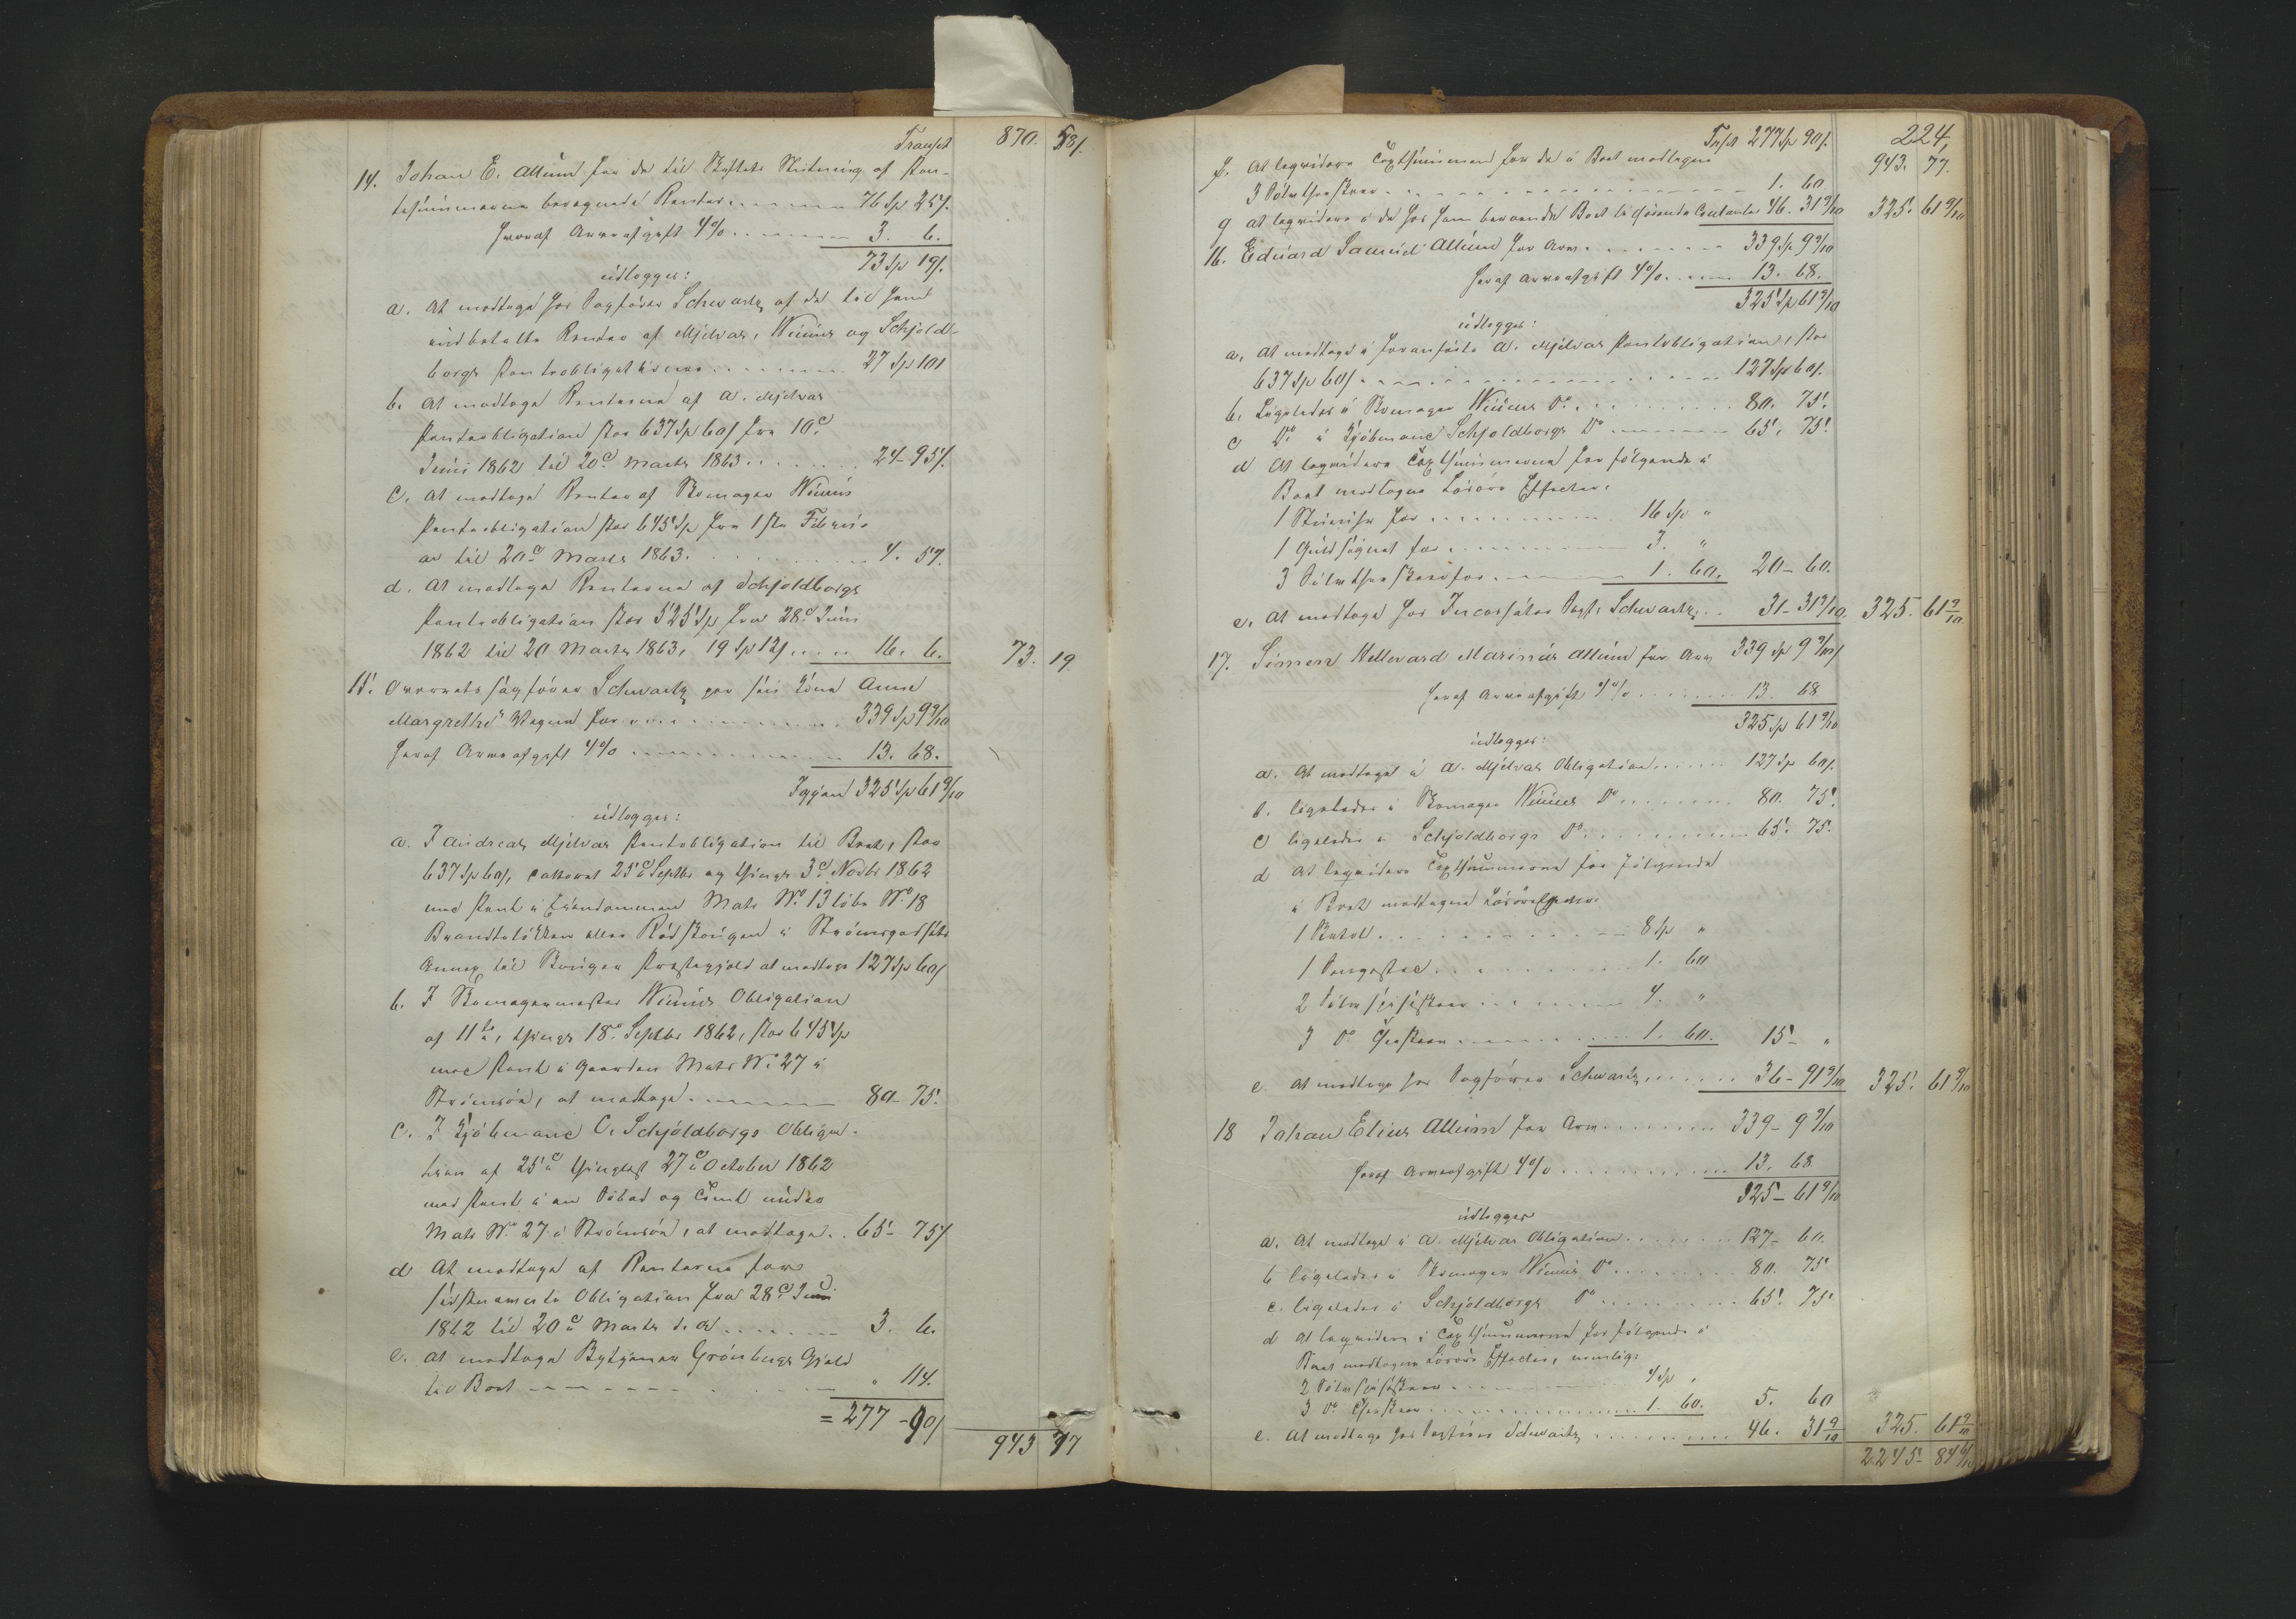 Transpt 870. 58/.
14. Johan E. Allum for de til Skiftets Slutning af Pan-
tesummerne beregnede Renter 76 Sp 25/.
heraf Arveafgift 4% 3. 6.
73 Sp 19/.
udlægges:
a. At modtage hos Sagfører Schwartz af de til ham
indbetalte Renter af Mjelvas, Winius og Schjold-
borgs Panteobligationer 27 Sp 101
b. At modtage Renterne af A. Mjelvas
Panteobligation stor 637 Sp 60/ fra 10d
Juni 1862 til 20d Marts 1863 24 - 95/.
c. At modtage Renter af Skomager Winius
Panteobligation stor 645 Sp fra 1ste Februa
ar til 20d Marts 1863. 4. 57.
d. At modtage Renterne af Schjoldborgs
Panteobligation stor 525 Sp fra 28d Juni
1862 til 20 Marts 1863, 19 Sp 12/ 16. 6. 73. 19.
15. Overretssagfører Schwartz paa sin Kone Anne
Margrethe Vegne for 339 Sp 9 9/10
heraf Arveafgift 4% 13. 68.
Igjen 325 Sp 61 9/10
udlægges:
a. I Andreas Mjelvas Panteobligation til Boet, stor
637 Sp 60/, dateret 25d Septbr og thinglæst 3d Novbr 1862
med Pant i Eiendommen Matr No. 13 Løbe No. 18
Brandteløkken eller Rødskougen i Strømsgodset
Annex til Skouger Præstegjeld at modtage 127 Sp 60/
b. I Skomagermester Winius Obligation
af 11te, thingl. 18d Septbr 1862, stor 645 Sp
med Pant i Gaarden Matr No. 27 i
Strømsøe, at modtage 80 - 75.
c. I Kjøbmand C. Schjøldborgs Obliga-
tion af 25d thinglæst 27d October 1862
med Pant i en Søbod og Tomt under
Matr No. 27 i Strømsøe, at modtage 65 - 75/
d At modtage af Renterne for
sidstnævnte Obligation fra 28d Juni
1862 til 20d Marts d. A 3. 6.
e. At modtage Bytjener Grønbergs Gjæld
til Boet " 114.
= 277 - 90/
943 77
Trspt 277 Sp 90/. 224,
f. At liqvidere Taxtsummen for de i Boet modtagne 943. 77.
3 Sølvtheskeer 1. 60
g at liqvidere i de hos ham beroende Boet tilhørende Contanter 46. 31 9/10 325. 61 9/10
16. Eduard Samuel Allum for Arv 339 Sp 9 9/10
heraf Arveafgift 4% 13. 68.
325 Sp 61 9/10
udlægges:
a, At modtage i foranførte A. Mjelvas Panteobligation, stor
637 Sp 60/ 127 Sp 60/.
b. Ligeledes i Skomager Winius Do 80. 75.
c Do i Kjøbmand Schjoldborgs Do 65. 75.
d At liqvidere Taxtsummerne for følgende i
Boet modtagne Løsøre Effecter,
1 Stueuhr for 16 Sp "
1 Guldsignet for 3. "
3 Sølvtheskeer for 1. 60. 20 - 60.
e. At modtage hos Incassator Sagf. Schwartz 31 - 31 9/10. 325. 61 9/10
17. Simen Hellvard Marinus Allum for Arv 339 Sp 9 9/10
heraf Arveafgift 4% 13. 68
325 Sp 61 9/10
udlægges:
a. At modtage i A. Mjelvas Obligation 127 Sp 60/.
b. ligeledes i Skomager Winius Do 80. 75.
c ligeledes i Schjoldborgs Do 65. 75.
d At liqvidere Taxtsummerne for følgende
i Boet modtagne Løsøreffecter.
1 Chatol 8 Sp "
1 Sengested 1. 60
2 Sølvspiseskeer 4. "
3 Do Theskeer 1. 60. 15 - "
e. At modtage hos Sagfører Schwartz 36 - 91 9/10 325. 61 9/10
18 Johan Elius Allum for Arv 339 - 9 9/10
heraf Arveafgift 4% 13. 68
325 - 61 9/10
udlægges
a. At modtage i A. Mjelvas Obligation 127 - 60.
b ligeledes i Skomager Winius Do 80. 75
c. ligeledes i Schjoldborgs Do 65. 75
d At liqvidere i Taxtsummerne for følgende i
Boet modtagne Løsøre Effecter, nemlig:
2 Sølvspiseskeer 4 Sp "
3 Do Theskeer 1. 60. 5. 60
e. At modtage hos Sagfører Schwartz 46. 31 9/10 325. 61 9/10
2245 - 84 6/10